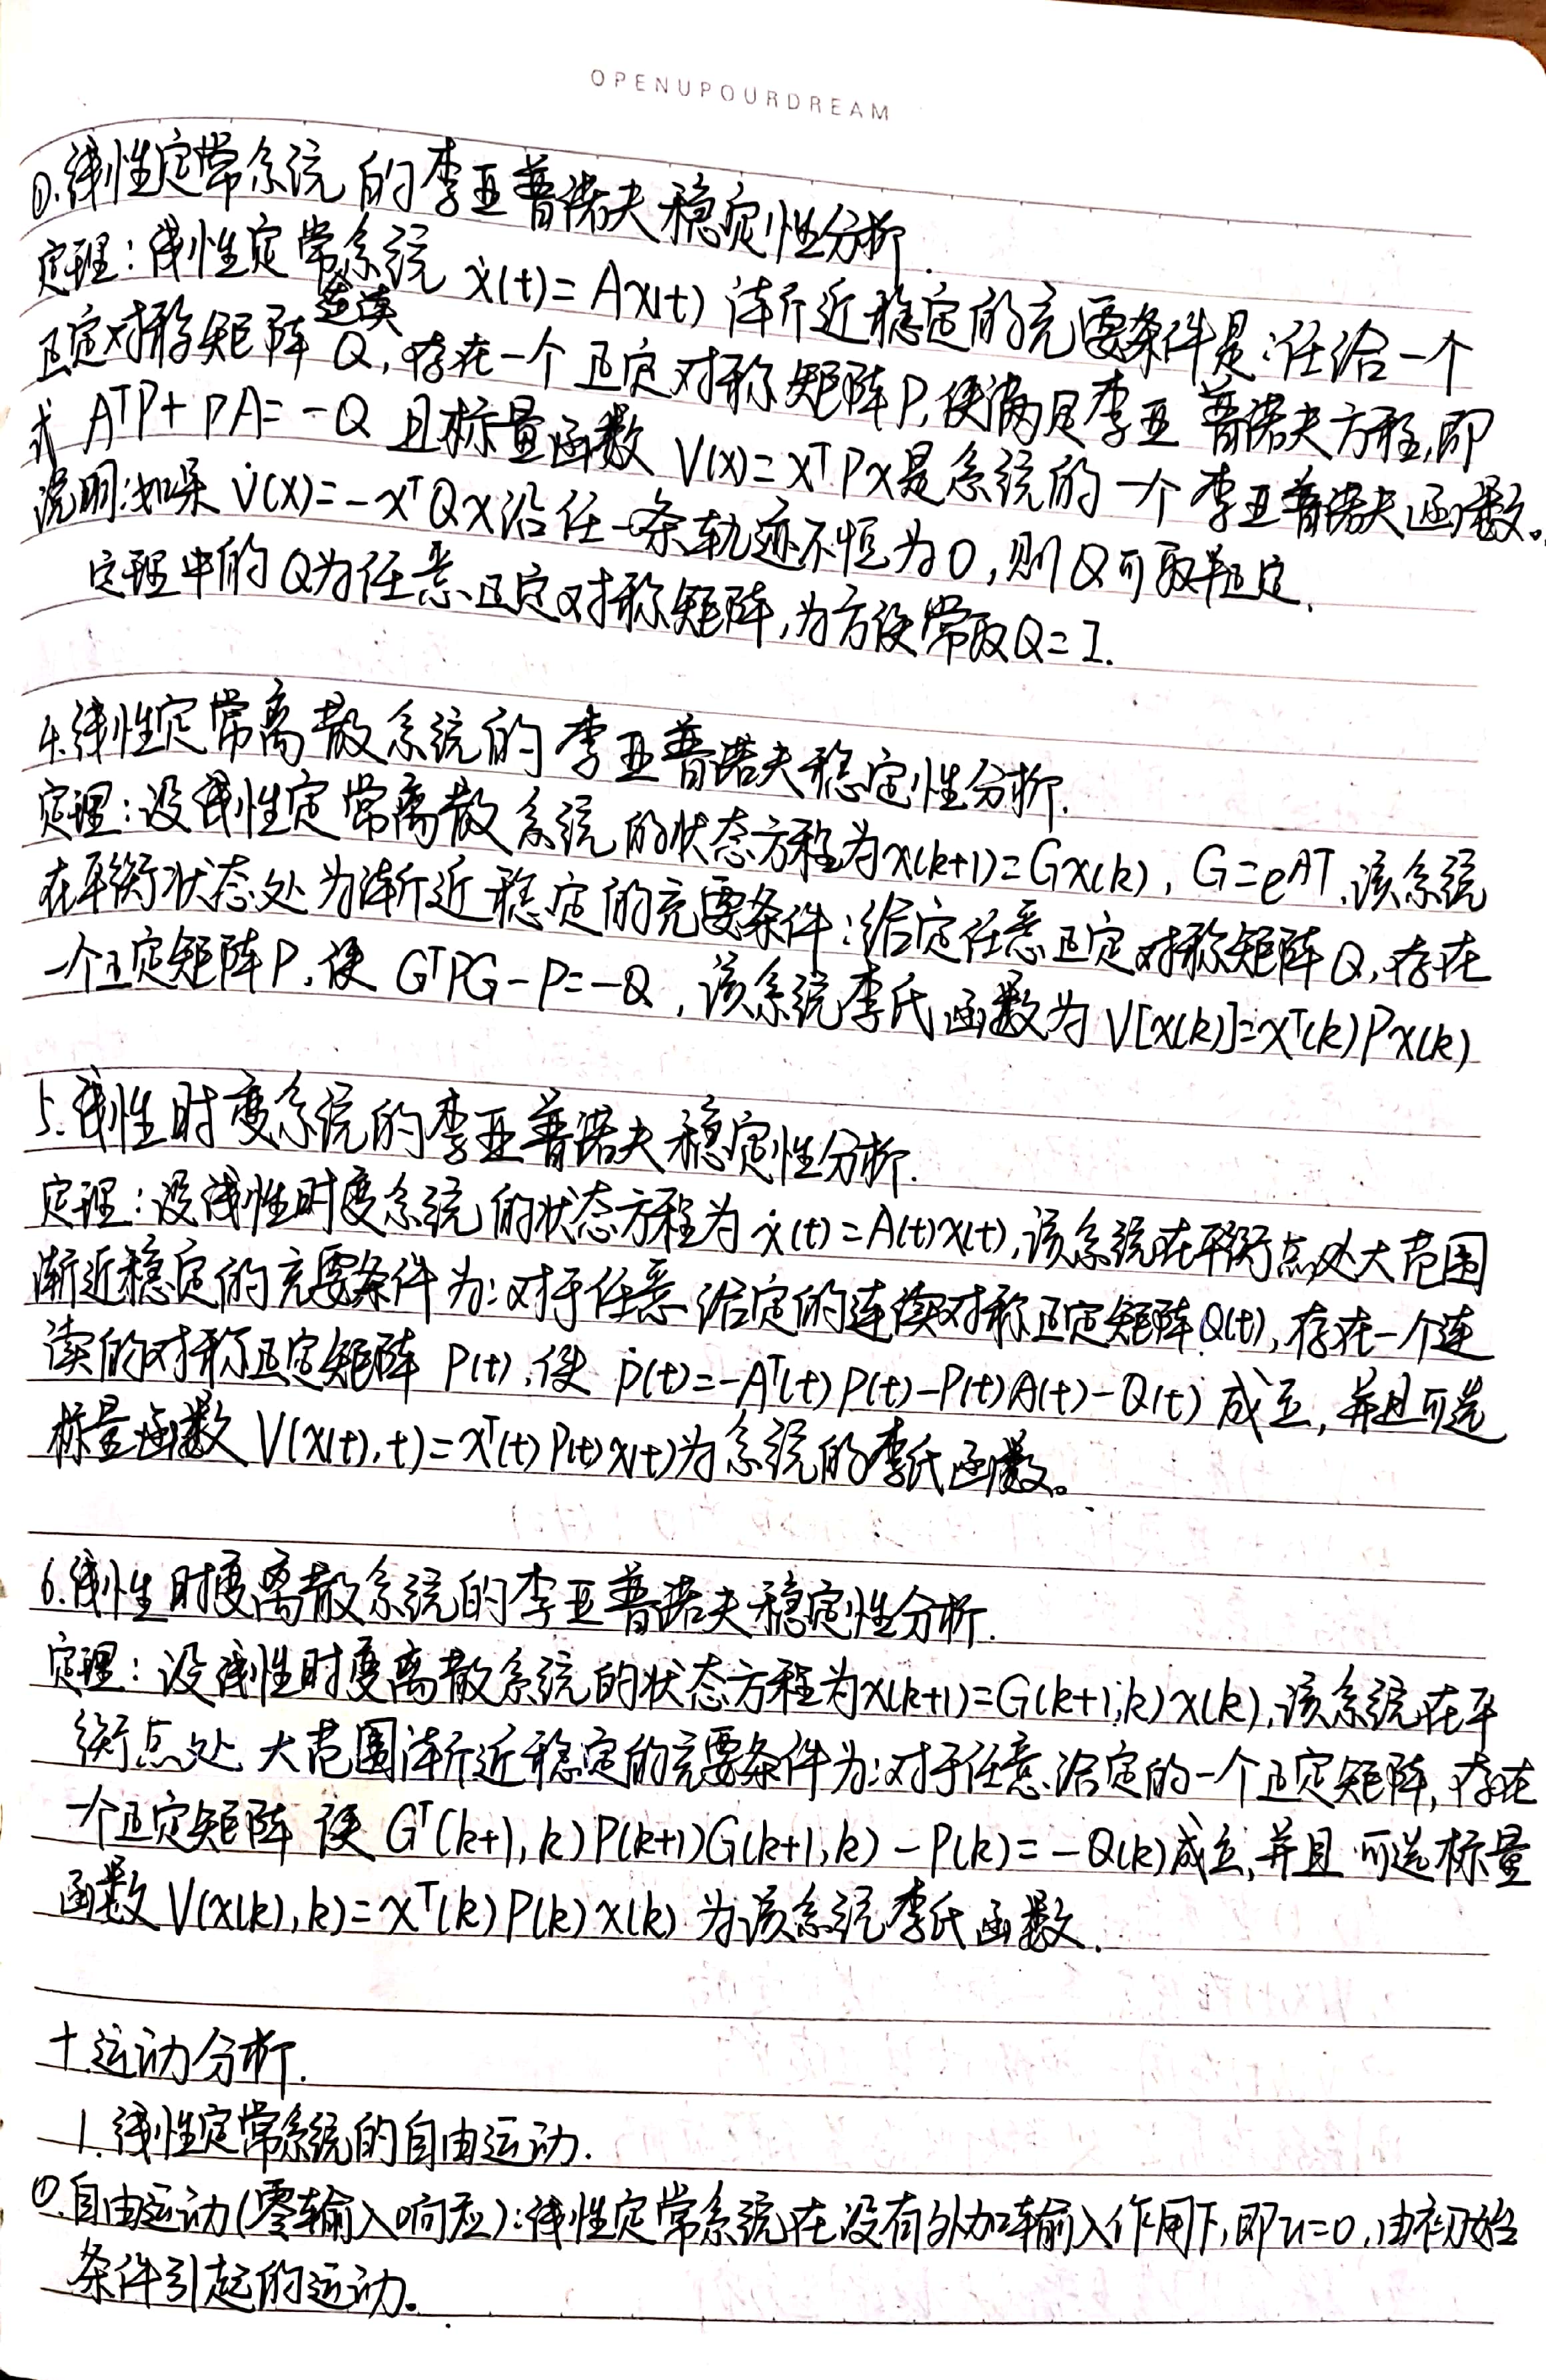 OPENUPOURDREAM
①.线性定常系统的李亚普诺夫稳定性分析.
定理:线性定常系统 ẋ(t)=Ax(t) 渐近稳定的充要条件是:任给一个
连续
正定对称矩阵Q,存在一个正定对称矩阵P,使满足李亚普诺夫方程,即
式 AᵀP+PA=-Q 且标量函数 V(x)=xᵀPx是系统的一个李亚普诺夫函数。
说明:如果 V̇(x)=-xᵀQx沿任一条轨迹不恒为0,则Q可取半正定.
定理中的Q为任意正定对称矩阵,为方便常取Q=I.
4.线性定常离散系统的李亚普诺夫稳定性分析.
定理:设线性定常离散系统的状态方程为x(k+1)=Gx(k), G=eᴬᵀ.该系统
在平衡状态处为渐近稳定的充要条件:给定任意正定对称矩阵Q,存在
一个正定矩阵P,使 GᵀPG-P=-Q,该系统李氏函数为V[x(k)]=xᵀ(k)Px(k)
5.线性时变系统的李亚普诺夫稳定性分析.
定理:设线性时变系统的状态方程为ẋ(t)=A(t)x(t),该系统在平衡点处大范围
渐近稳定的充要条件为:对于任意给定的连续对称正定矩阵Q(t),存在一个连
续的对称正定矩阵 P(t),使 Ṗ(t)=-Aᵀ(t)P(t)-P(t)A(t)-Q(t) 成立,并且可选
标量函数 V(x(t),t)=xᵀ(t)P(t)x(t)为系统的李氏函数。
6.线性时变离散系统的李亚普诺夫稳定性分析.
定理:设线性时变离散系统的状态方程为x(k+1)=G(k+1,k)x(k),该系统在平
衡点处大范围渐近稳定的充要条件为:对于任意给定的一个正定矩阵,存在
一个正定矩阵 使 Gᵀ(k+1,k)P(k+1)G(k+1,k)-P(k)=-Q(k)成立,并且可选标量
函数 V(x(k),k)=xᵀ(k)P(k)x(k) 为该系统李氏函数.
十.运动分析.
1.线性定常系统的自由运动.
①.自由运动(零输入响应):线性定常系统在没有外加输入作用下,即u=0,由初始
条件引起的运动。